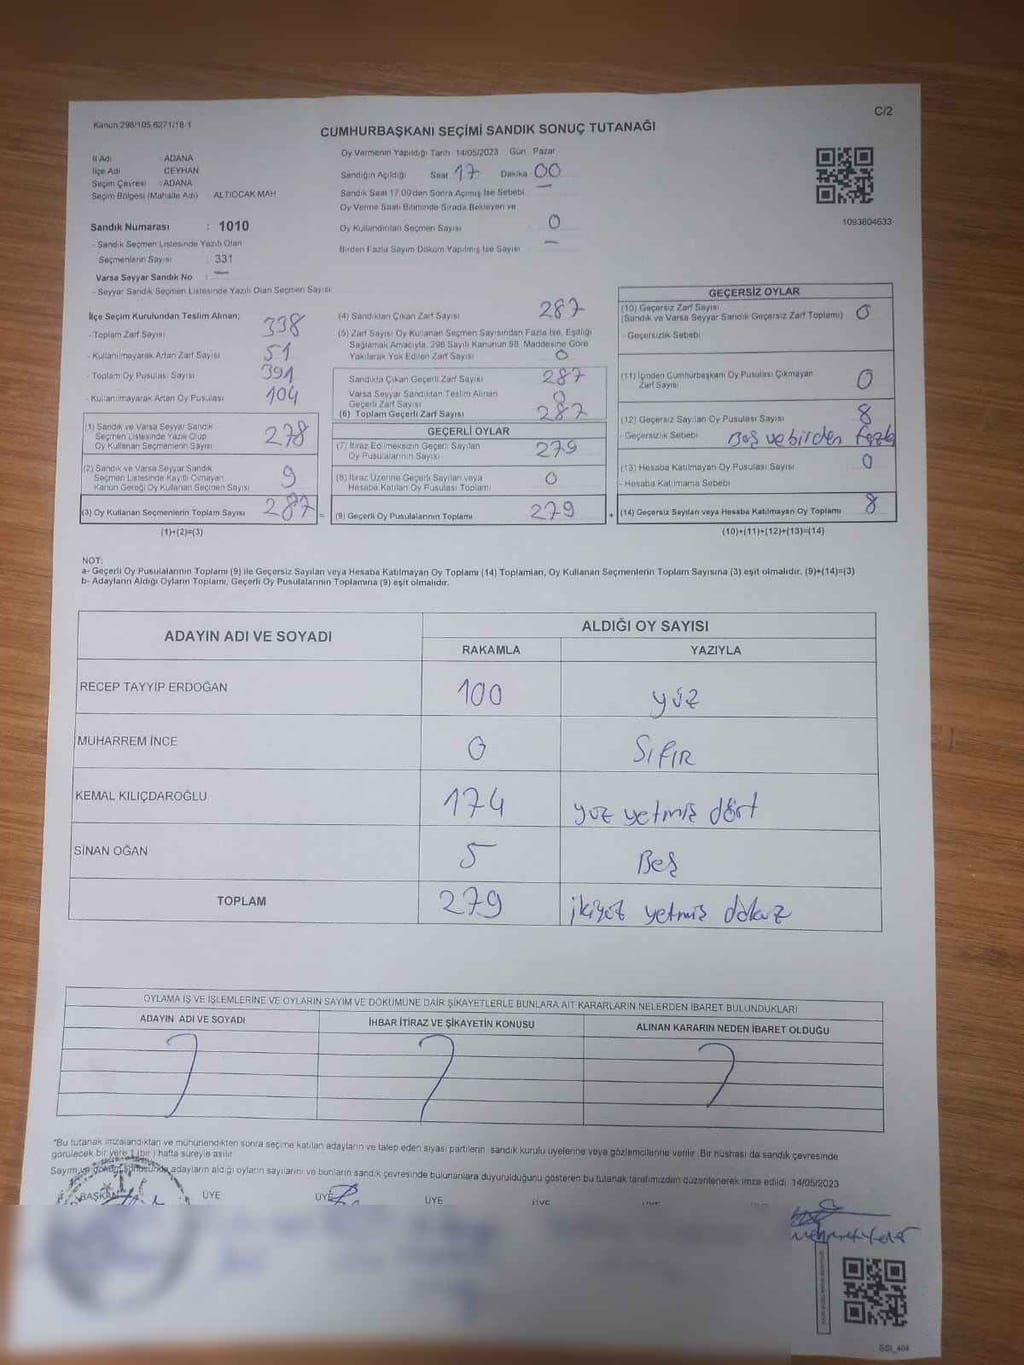 Kanun 298/105 6271/18-1
C/2
CUMHURBAŞKANI SEÇİMİ SANDIK SONUÇ TUTANAĞI
İl Adı ADANA
İlçe Adı CEYHAN
Seçim Çevresi : ADANA
Seçim Bölgesi (Mahalle Adı) ALTIOCAK MAH
Sandık Numarası : 1010
- Sandık Seçmen Listesinde Yazılı Olan
Seçmenlerin Sayısı : 331
Varsa Seyyar Sandık No : —
- Seyyar Sandık Seçmen Listesinde Yazılı Olan Seçmen Sayısı
Oy Vermenin Yapıldığı Tarih 14/05/2023 Gün Pazar
Sandığın Açıldığı Saat 17 Dakika 00
Sandık Saat 17.00'den Sonra Açılmış İse Sebebi —
Oy Verme Saati Bitiminde Sırada Bekleyen ve
Oy Kullandırılan Seçmen Sayısı 0
Birden Fazla Sayım Döküm Yapılmış İse Sayısı —
1093804633
İlçe Seçim Kurulundan Teslim Alınan;
- Toplam Zarf Sayısı 338
- Kullanılmayarak Artan Zarf Sayısı 51
- Toplam Oy Pusulası Sayısı 391
- Kullanılmayarak Artan Oy Pusulası 104
(1) Sandık ve Varsa Seyyar Sandık
Seçmen Listesinde Yazılı Olup
Oy Kullanan Seçmenlerin Sayısı 278
(2) Sandık ve Varsa Seyyar Sandık
Seçmen Listesinde Kayıtlı Olmayan
Kanun Gereği Oy Kullanan Seçmen Sayısı 9
(3) Oy Kullanan Seçmenlerin Toplam Sayısı 287 =
(1)+(2)=(3)
(4) Sandıktan Çıkan Zarf Sayısı 287
(5) Zarf Sayısı Oy Kullanan Seçmen Sayısından Fazla İse, Eşitliği
Sağlamak Amacıyla, 298 Sayılı Kanunun 98. Maddesine Göre
Yakılarak Yok Edilen Zarf Sayısı 0
Sandıkta Çıkan Geçerli Zarf Sayısı 287
Varsa Seyyar Sandıktan Teslim Alınan
Geçerli Zarf Sayısı 0
(6) Toplam Geçerli Zarf Sayısı 287
GEÇERLİ OYLAR
(7) İtiraz Edilmeksizin Geçerli Sayılan
Oy Pusulalarının Sayısı 279
(8) İtiraz Üzerine Geçerli Sayılan veya
Hesaba Katılan Oy Pusulası Toplamı 0
(9) Geçerli Oy Pusulalarının Toplamı 279 +
GEÇERSİZ OYLAR
(10) Geçersiz Zarf Sayısı
(Sandık ve Varsa Seyyar Sandık Geçersiz Zarf Toplamı) 0
- Geçersizlik Sebebi
(11) İçinden Cumhurbaşkanı Oy Pusulası Çıkmayan
Zarf Sayısı 0
(12) Geçersiz Sayılan Oy Pusulası Sayısı 8
- Geçersizlik Sebebi Boş ve birden fazla
(13) Hesaba Katılmayan Oy Pusulası Sayısı 0
- Hesaba Katılmama Sebebi
(14) Geçersiz Sayılan veya Hesaba Katılmayan Oy Toplamı 8
(10)+(11)+(12)+(13)=(14)
NOT:
a- Geçerli Oy Pusulalarının Toplamı (9) ile Geçersiz Sayılan veya Hesaba Katılmayan Oy Toplamı (14) Toplamları, Oy Kullanan Seçmenlerin Toplam Sayısına (3) eşit olmalıdır. (9)+(14)=(3)
b- Adayların Aldığı Oyların Toplamı, Geçerli Oy Pusulalarının Toplamına (9) eşit olmalıdır.
ADAYIN ADI VE SOYADI
ALDIĞI OY SAYISI
RAKAMLA YAZIYLA
RECEP TAYYİP ERDOĞAN 100 yüz
MUHARREM İNCE 0 SIFIR
KEMAL KILIÇDAROĞLU 174 yüz yetmiş dört
SİNAN OĞAN 5 Beş
TOPLAM 279 ikiyüz yetmiş dokuz
OYLAMA İŞ VE İŞLEMLERİNE VE OYLARIN SAYIM VE DÖKÜMÜNE DAİR ŞİKAYETLERLE BUNLARA AİT KARARLARIN NELERDEN İBARET BULUNDUKLARI
ADAYIN ADI VE SOYADI İHBAR İTİRAZ VE ŞİKAYETİN KONUSU ALINAN KARARIN NEDEN İBARET OLDUĞU
"Bu tutanak imzalandıktan ve mühürlendikten sonra seçime katılan adayların ve talep eden siyasi partilerin sandık kurulu üyelerine veya gözlemcilerine verilir. Bir nüshası da sandık çevresinde
görülecek bir yere 1 (bir) hafta süreyle asılır.
Sayım ve döküm sonucunda adayların aldığı oyların sayılarını ve bunların sandık çevresinde bulunanlara duyurulduğunu gösteren bu tutanak tarafımızdan düzenlenerek imza edildi. 14/05/2023
BAŞKAN ÜYE ÜYE ÜYE ÜYE ÜYE